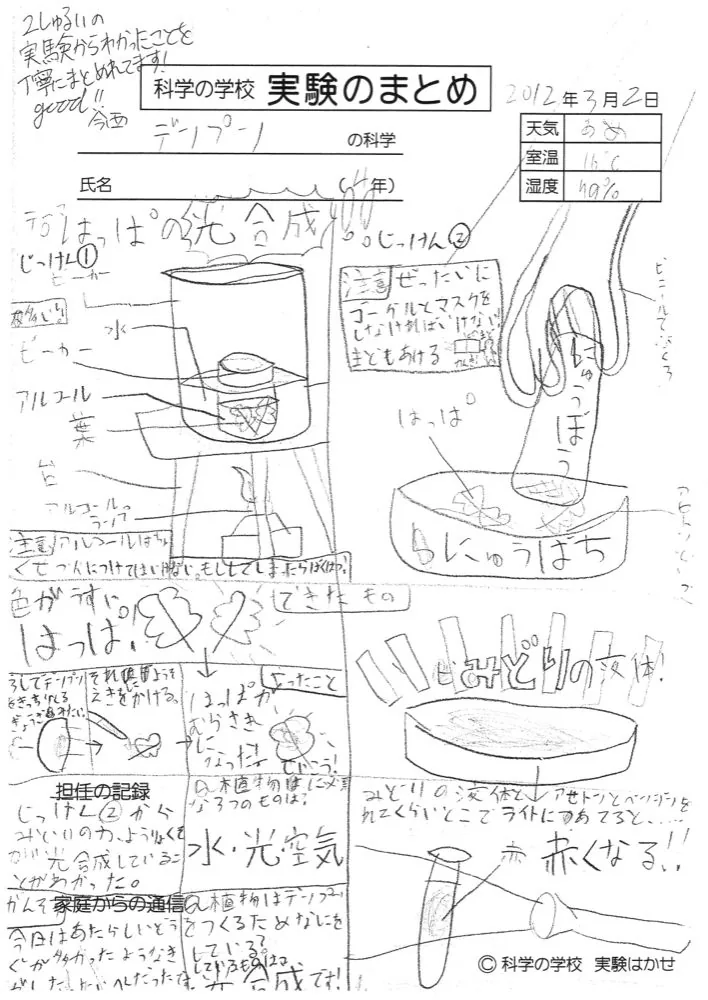 2しゅるいの
実験からわかったことを
丁寧にまとめれてます!
good!!
今西
科学の学校 実験のまとめ
2012年3月2日
天気 あめ
室温
湿度
デンプン の科学
氏名 (4年)
はっぱの光合成
じっけん①
ビーカー
水
ビーカー
アルコール
葉
台
アルコールランプ
注意
じっけん②
注意 ぜったいに
ゴーグルとマスクを
しなければいけない!
まどもあける
ビニールてぶくろ
にゅうぼう
はっぱ
にゅうばち
色がうすい
はっぱ!
できたもの
それにようそ
えきをかける。
はっぱが
むらさき
に
なった
みどりの液体!
担任の記録
じっけん②から
光合成しているこ
とがわかった。
Q.植物に必要
な3つのものは?
水・光・空気
みどりの液体と アセトンとベンジンを
いれてくらいとこでライトにあてると、……
赤 赤くなる!!
家庭からの通信
かんそう
今日はあたらしいどう
ぐが多かったようなき
Q.植物はデンプン
をつくるためなにを
している?
しているものは
光合成です!
© 科学の学校 実験はかせ